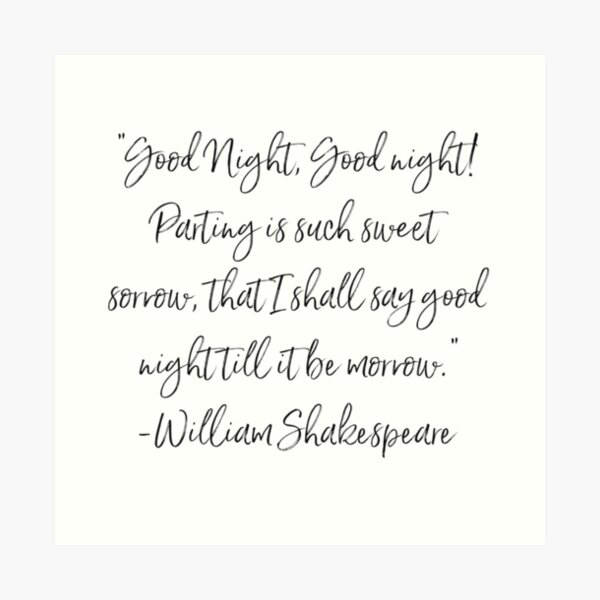 "Good Night, Good night!
Parting is such sweet
sorrow, that I shall say good
night till it be morrow."
-William Shakespeare